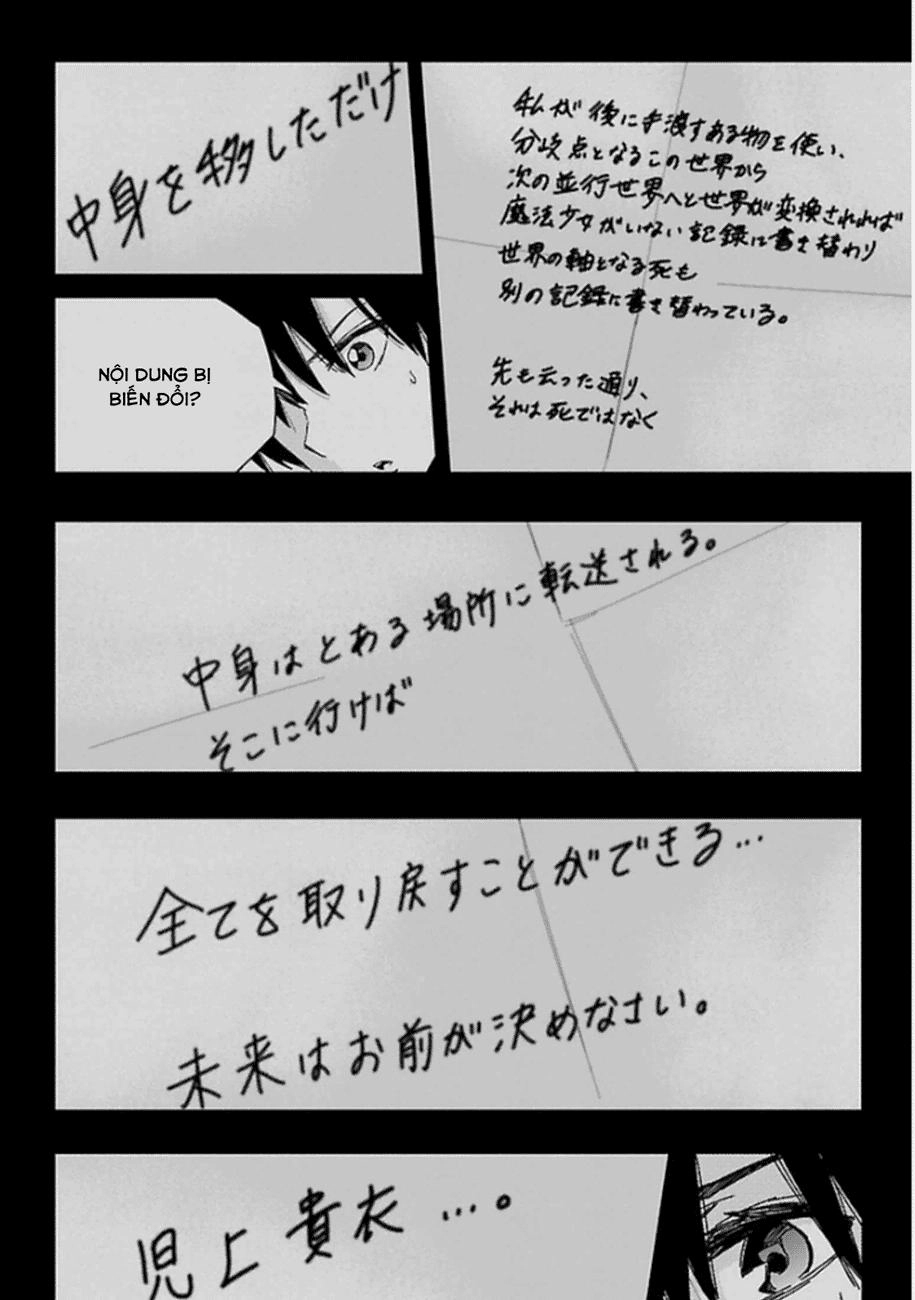 私が後に手渡すある物を使い、
分岐点となるこの世界から
次の並行世界へと世界が変換されれば
魔法少女がいない記録に書き替わり
世界の軸となる死も
別の記録に書き替わっている。
先も云った通り、
それは死ではなく
中身を移しただけ
NỘI DUNG BỊ
BIẾN ĐỔI?
中身はとある場所に転送される。
そこに行けば
全てを取り戻すことができる…
未来はお前が決めなさい。
児上貴衣…。